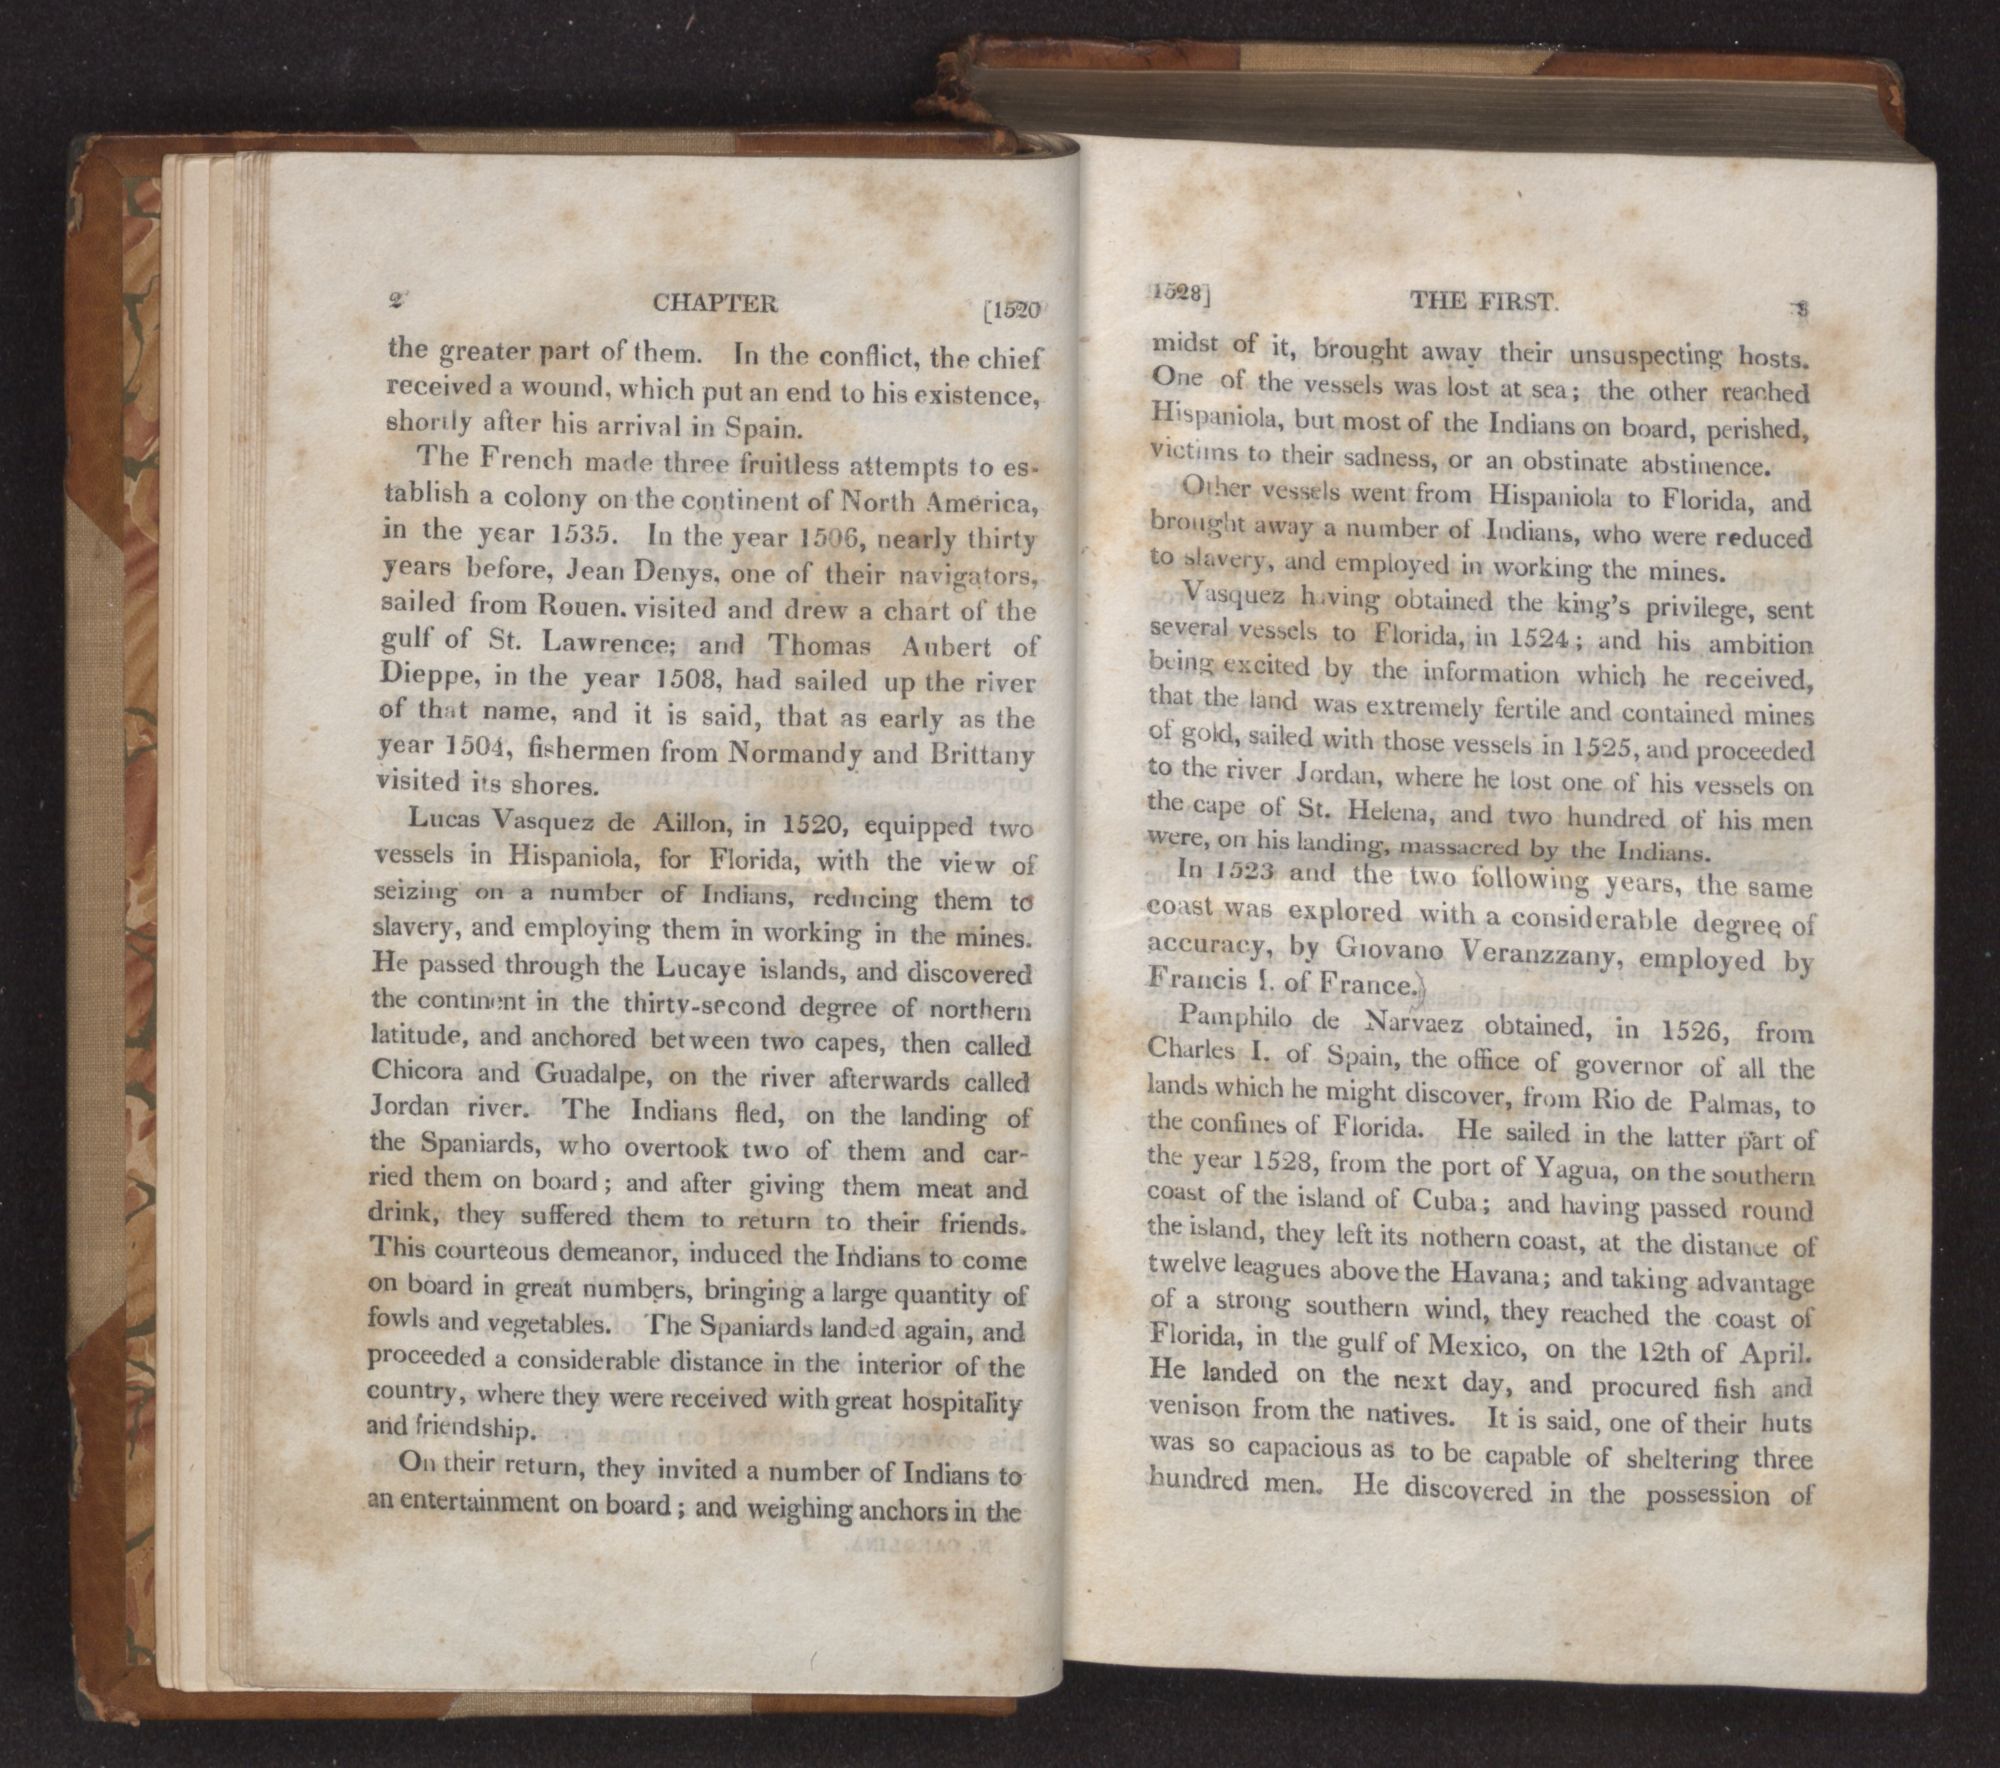 2 CHAPTER [1520
the greater part of them. In the conflict, the chief
received a wound, which put an end to his existence,
shortly after his arrival in Spain.
The French made three fruitless attempts to es-
tablish a colony on the continent of North America,
in the year 1535. In the year 1506, nearly thirty
years before, Jean Denys, one of their navigators,
sailed from Rouen. visited and drew a chart of the
gulf of St. Lawrence; and Thomas Aubert of
Dieppe, in the year 1508, had sailed up the river
of that name, and it is said, that as early as the
year 1504, fishermen from Normandy and Brittany
visited its shores.
Lucas Vasquez de Aillon, in 1520, equipped two
vessels in Hispaniola, for Florida, with the view of
seizing on a number of Indians, reducing them to
slavery, and employing them in working in the mines.
He passed through the Lucaye islands, and discovered
the continent in the thirty-second degree of northern
latitude, and anchored between two capes, then called
Chicora and Guadalpe, on the river afterwards called
Jordan river. The Indians fled, on the landing of
the Spaniards, who overtook two of them and car-
ried them on board; and after giving them meat and
drink, they suffered them to return to their friends.
This courteous demeanor, induced the Indians to come
on board in great numbers, bringing a large quantity of
fowls and vegetables. The Spaniards landed again, and
proceeded a considerable distance in the interior of the
country, where they were received with great hospitality
and friendship.
On their return, they invited a number of Indians to
an entertainment on board; and weighing anchors in the
1528] THE FIRST. 3
midst of it, brought away their unsuspecting hosts.
One of the vessels was lost at sea; the other reached
Hispaniola, but most of the Indians on board, perished,
victims to their sadness, or an obstinate abstinence.
Other vessels went from Hispaniola to Florida, and
brought away a number of Indians, who were reduced
to slavery, and employed in working the mines.
Vasquez having obtained the king's privilege, sent
several vessels to Florida, in 1524; and his ambition
being excited by the information which he received,
that the land was extremely fertile and contained mines
of gold, sailed with those vessels in 1525, and proceeded
to the river Jordan, where he lost one of his vessels on
the cape of St. Helena, and two hundred of his men
were, on his landing, massacred by the Indians.
In 1523 and the two following years, the same
coast was explored with a considerable degree of
accuracy, by Giovano Veranzzany, employed by
Francis I. of France.)
Pamphilo de Narvaez obtained, in 1526, from
Charles I. of Spain, the office of governor of all the
lands which he might discover, from Rio de Palmas, to
the confines of Florida. He sailed in the latter part of
the year 1528, from the port of Yagua, on the southern
coast of the island of Cuba; and having passed round
the island, they left its nothern coast, at the distance of
twelve leagues above the Havana; and taking advantage
of a strong southern wind, they reached the coast of
Florida, in the gulf of Mexico, on the 12th of April.
He landed on the next day, and procured fish and
venison from the natives. It is said, one of their huts
was so capacious as to be capable of sheltering three
hundred men. He discovered in the possession of